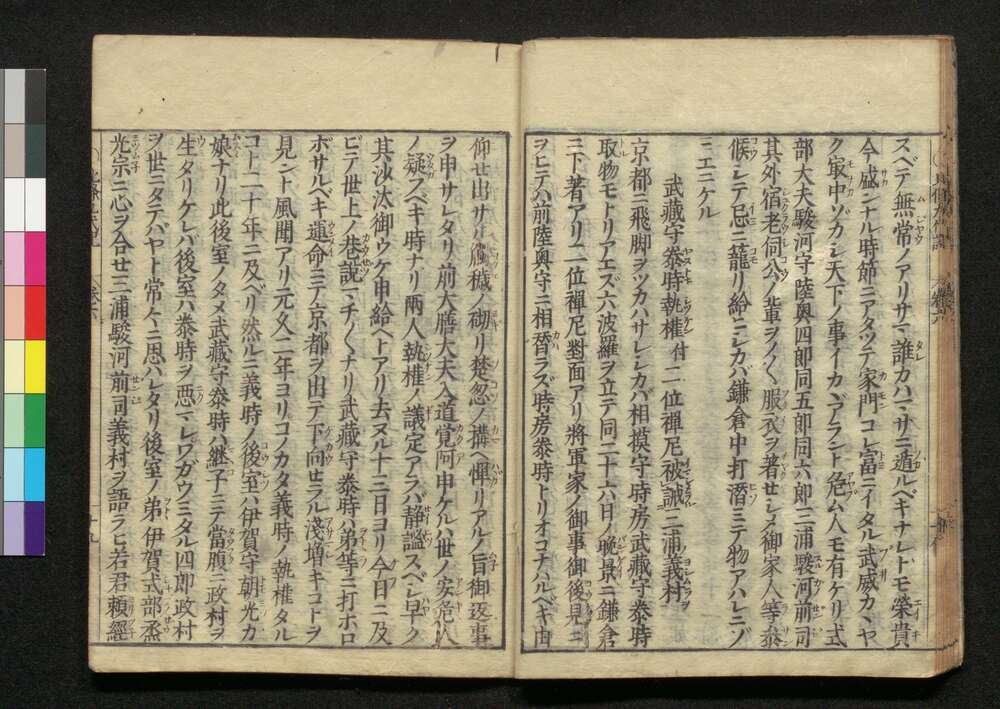 スベテ無常ノアリサマ誰カハマサニ遁ルベキナレトモ榮貴
今盛ンナル時節ニアタツテ家門コレ富ニイタル武威カヽヤ
ク㝡中ゾカシ天下ノ事イカヾアラント危ム人モ有ケリ式
部大夫駿河守陸奥四郎同五郎同六郎三浦駿河前司
其外宿老伺公ノ輩ヲノ〱服衣ヲ著セシメ御家人等参
候シテ忌ニ籠リ給ニシカハ鎌倉中打潛ミテ物アハレニゾ
ミエニケル
武藏守泰時執權付二位禪尼被誡三浦義村
京都ニ飛脚ヲツカハサレシカバ相摸守時房武藏守泰時
取物モトリアエズ六波羅ヲ立テ同二十六日ノ晩景ニ鎌倉
ニ下著アリ二位禪尼對面アリ將軍家ノ御事御後見ニ
ヲヒテハ前陸奥守ニ相替ラズ時房泰時トリオコナハルベキ由
仰せ出サル觸穢ノ砌リ楚忽ノ搆ヘ憚リアルノ旨御返事
ヲ申サレタリ前大膳大夫入道覚阿申ケルハ世ノ安危人
ノ疑スベキ時ナリ両人執權ノ議定アラバ静謐スベシ早ク
其沙汰御ウケ申給ヘトアリ去ヌル十三日ヨリ今日ニ及
ビテ世上ノ巷説マチ〱ナリ武藏守泰時ハ弟等ニ打ホロ
ボサルベキ運命ニテ京都ヲ出テ下向せラル淺増キコトヲ
見ント風聞アリ元久二年ヨリコノカタ義時ノ執權タル
コト二十年ニ及ベリ然ルニ義時ノ後室ハ伊賀守朝光カ
娘ナリ此後室ノタメ武藏守泰時ハ継子ニテ當腹ニ政村ヲ
生タリケレバ後室ハ泰時ヲ悪マレワガウミタル四郎政村
ヲ世ニタテバヤト常々ニ思ハレタリ後室ノ弟伊賀式部丞
光宗ニ心ヲ合せ三浦駿河前司義村ヲ語ラヒ若君頼經